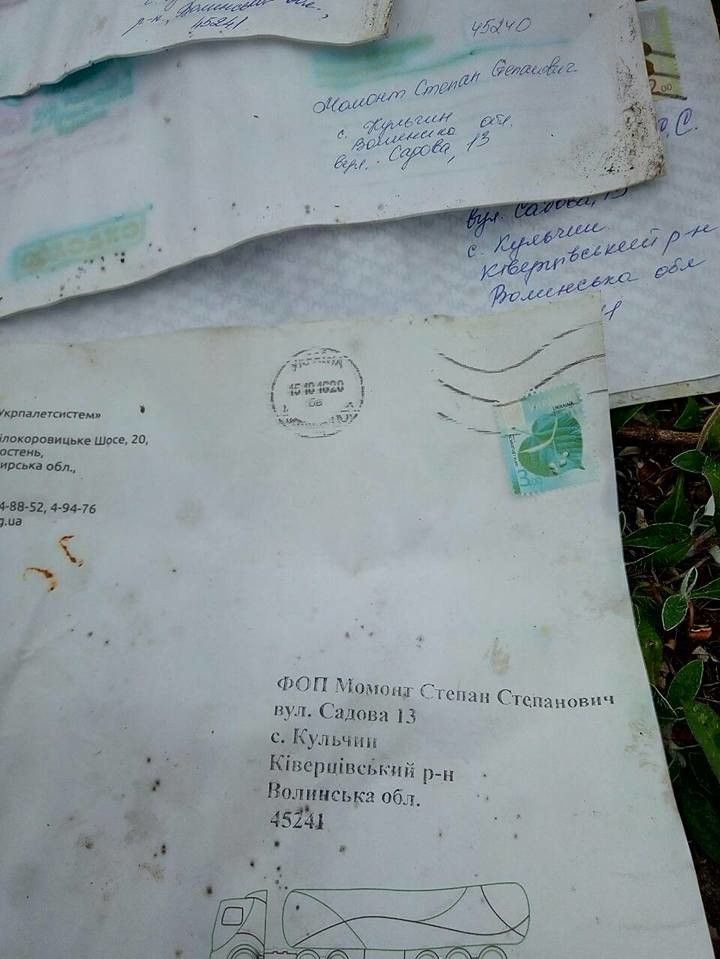 р-н, Волинської обл.,
45241
45240
Момонт Степан Степанович
с. Кульчин
Волинська обл.
вул. Садова, 13
С.
вул. Садова, 13
с. Кульчин
Ківерцівський р-н
Волинська обл
Укрпалетсистем»
ілокоровицьке Шосе, 20,
остень,
ирська обл.,
4-88-52, 4-94-76
g.ua
УКРАЇНА
15101620
UKRAINA
ФОП Момонт Степан Степанович
вул. Садова 13
с. Кульчин
Ківерцівський р-н
Волинська обл.
45241